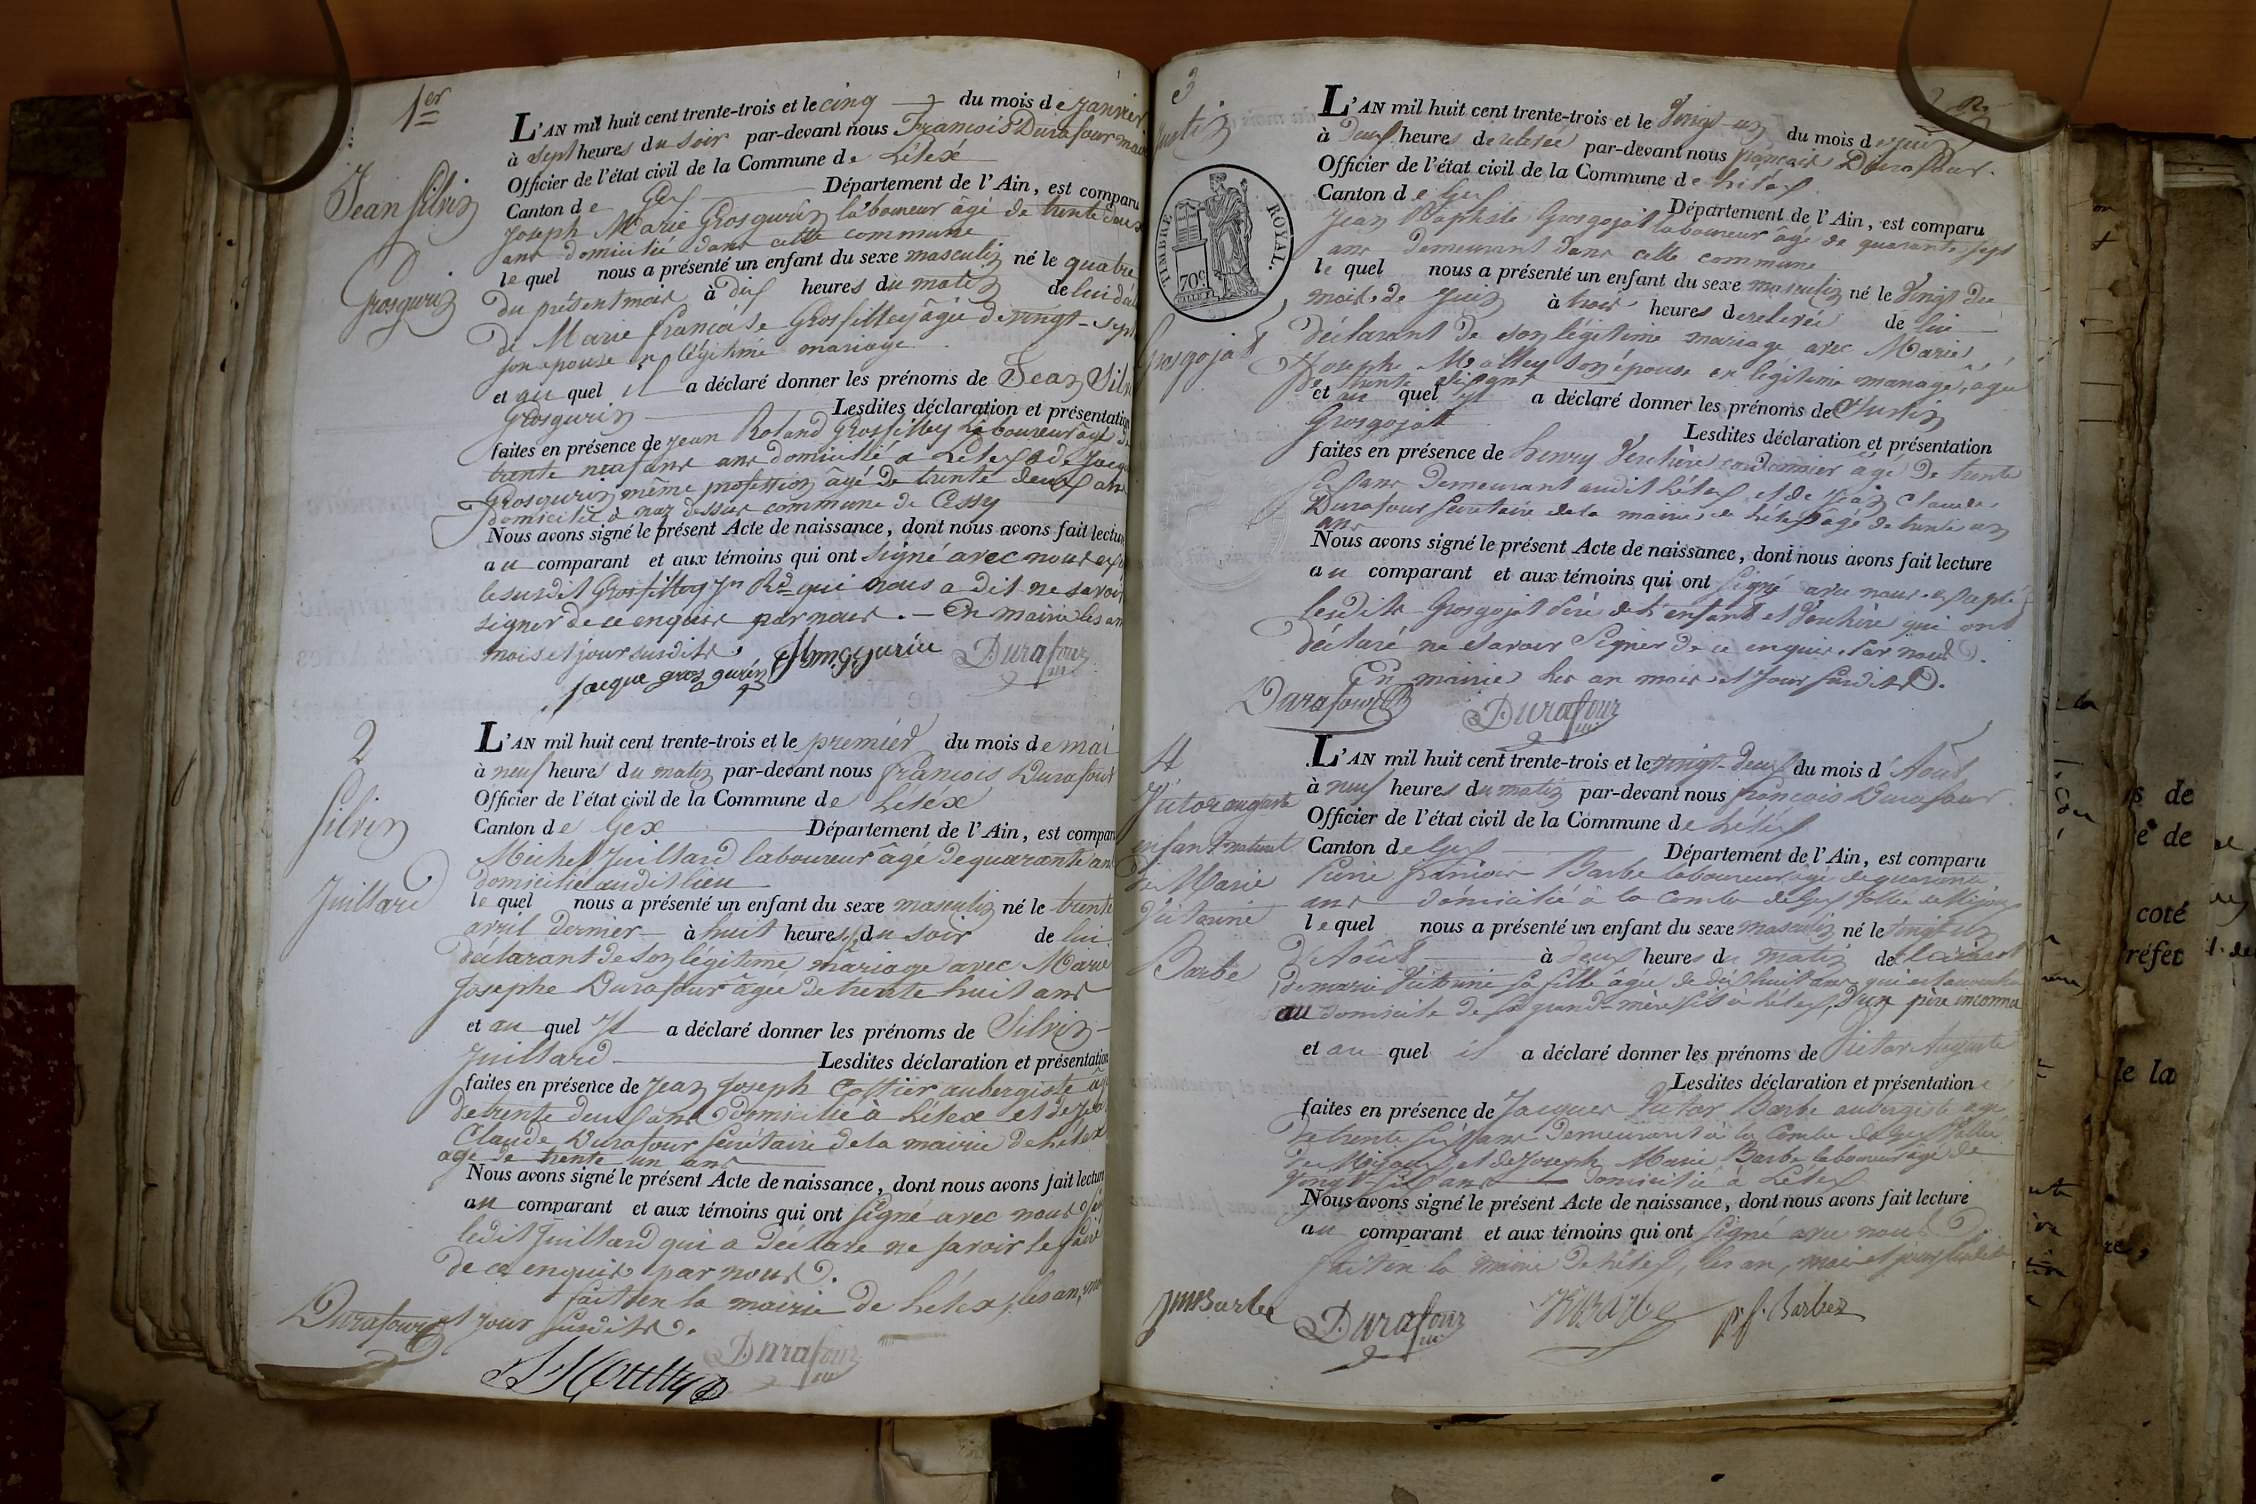 1er
Jean Silvin
Grosgurin
L'AN mil huit cent trente-trois et le cinq du mois de janvier
à sept heures du soir par-devant nous François Durafour maire
Officier de l'état civil de la Commune de Lélex
Canton de Gex Département de l'Ain, est comparu
Joseph Marie Grosgurin laboureur âgé de trente deux
ans domicilié dans cette commune
lequel nous a présenté un enfant du sexe masculin né le quatre
du présent mois à dix heures du matin de lui
de Marie françoise Grosfilley âgée de vingt-sept
son épouse en légitime mariage
et au quel il a déclaré donner les prénoms de Jean Silvin
Grosgurin Lesdites déclaration et présentation
faites en présence de Jean Roland Grosfilley Laboureur âgé de
trente neuf ans ans domicilié a Lélex & de Jacque
Grosgurin même profession âgé de trente deux ans
domicilié à naz dessus commune de Cessy
Nous avons signé le présent Acte de naissance, dont nous avons fait lecture
au comparant et aux témoins qui ont signé avec nous
le susdit Grosfilley Jn Rd qui nous a dit ne savoir
signer de ce enquis par nous. - En mairie les an
mois et jour susdits.
jacque gros gurin
Durafour
2
Silvin
Juillard
L'AN mil huit cent trente-trois et le premier du mois de mai
à neuf heures du matin par-devant nous françois Durafour
Officier de l'état civil de la Commune de Lélex
Canton de Gex Département de l'Ain, est comparu
Michel Juillard laboureur âgé de quarante ans
domicilié audit lieu
lequel nous a présenté un enfant du sexe masculin né le trente
avril dernier à huit heures du soir de lui
déclarant de son légitime mariage avec Marie
Josephe Durafour âgée de trente huit ans
et au quel Il a déclaré donner les prénoms de Silvin
Juillard Lesdites déclaration et présentation
faites en présence de Jean Joseph Cottier aubergiste âgé
de trente deux ans domicilié à Lélex et de Jean
Claude Durafour secrétaire de la mairie de Lélex
agé de trente un ans
Nous avons signé le présent Acte de naissance, dont nous avons fait lecture
au comparant et aux témoins qui ont signé avec nous
ledit Juillard qui a déclaré ne savoir le faire
de ce enquis par nous.
fait en la mairie de Lélex, les an, mois
et jour susdits.
Durafour
Durafour
3
Justin
Grosgojat
TIMBRE ROYAL.
70c
L'AN mil huit cent trente-trois et le Vingt un du mois de juin
à Deux heures de relevée par-devant nous françois Durafour
Officier de l'état civil de la Commune de Lélex
Canton de Gex Département de l'Ain, est comparu
Jean Baptiste Grosgojat laboureur âgé de quarante sept
ans demeurant dans cette commune
lequel nous a présenté un enfant du sexe masculin né le Vingt du
mois de juin à trois heures de relevée de lui
déclarant de son légitime mariage avec Marie
Josephe Malley son épouse en légitime mariage, âgée
de trente
et au quel a déclaré donner les prénoms de Justin
Grosgojat Lesdites déclaration et présentation
faites en présence de henry Verchère cordonnier âgé de trente
six ans demeurant audit Lélex et de Jean Claude
Durafour secrétaire de la mairie de Lélex âgé de trente un
ans
Nous avons signé le présent Acte de naissance, dont nous avons fait lecture
au comparant et aux témoins qui ont signé avec nous excepté
lesdits Grosgojat père de l'enfant et Verchère qui ont
déclaré ne savoir signer de ce enquis par nous.
En mairie les an mois et jour susdits.
Durafour
Durafour
4
Victor auguste
enfant naturel
de Marie
Victorine
Barbe
L'AN mil huit cent trente-trois et le vingt-deux du mois d'Août
à neuf heures du matin par-devant nous françois Durafour
Officier de l'état civil de la Commune de Lélex
Canton de Gex Département de l'Ain, est comparu
Pierre françois Barbe laboureur âgé de quarante
ans domicilié à la combe de Gex Vallée de Mijoux
lequel nous a présenté un enfant du sexe masculin né le vingt un
d'Août à deux heures du matin de
de marie Victorine sa fille âgée de dix huit ans qui est
au domicile de sa grand-mère sis à Lélex, D'un père inconnu
et au quel il a déclaré donner les prénoms de Victor Auguste
Lesdites déclaration et présentation
faites en présence de Jacques Victor Barbe aubergiste agé
de trente six ans demeurant à la Combe de Gex Vallée
de Mijoux, et de Joseph Marie Barbe laboureur âgé de
vingt-six ans domicilié à Lélex
Nous avons signé le présent Acte de naissance, dont nous avons fait lecture
au comparant et aux témoins qui ont signé avec nous.
fait en la mairie de Lélex, les an, mois et jour susdits
Durafour
p.f. Barbe
is de
e de
coté
réfet
de la